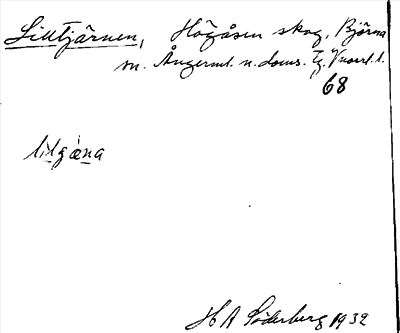 Lilltjärnen, Högåsen skog, Björna
sn. Ångerml. n. doms. Tg. V'norrl. l.
68
lìlgæ̀na
H A Söderberg 1932